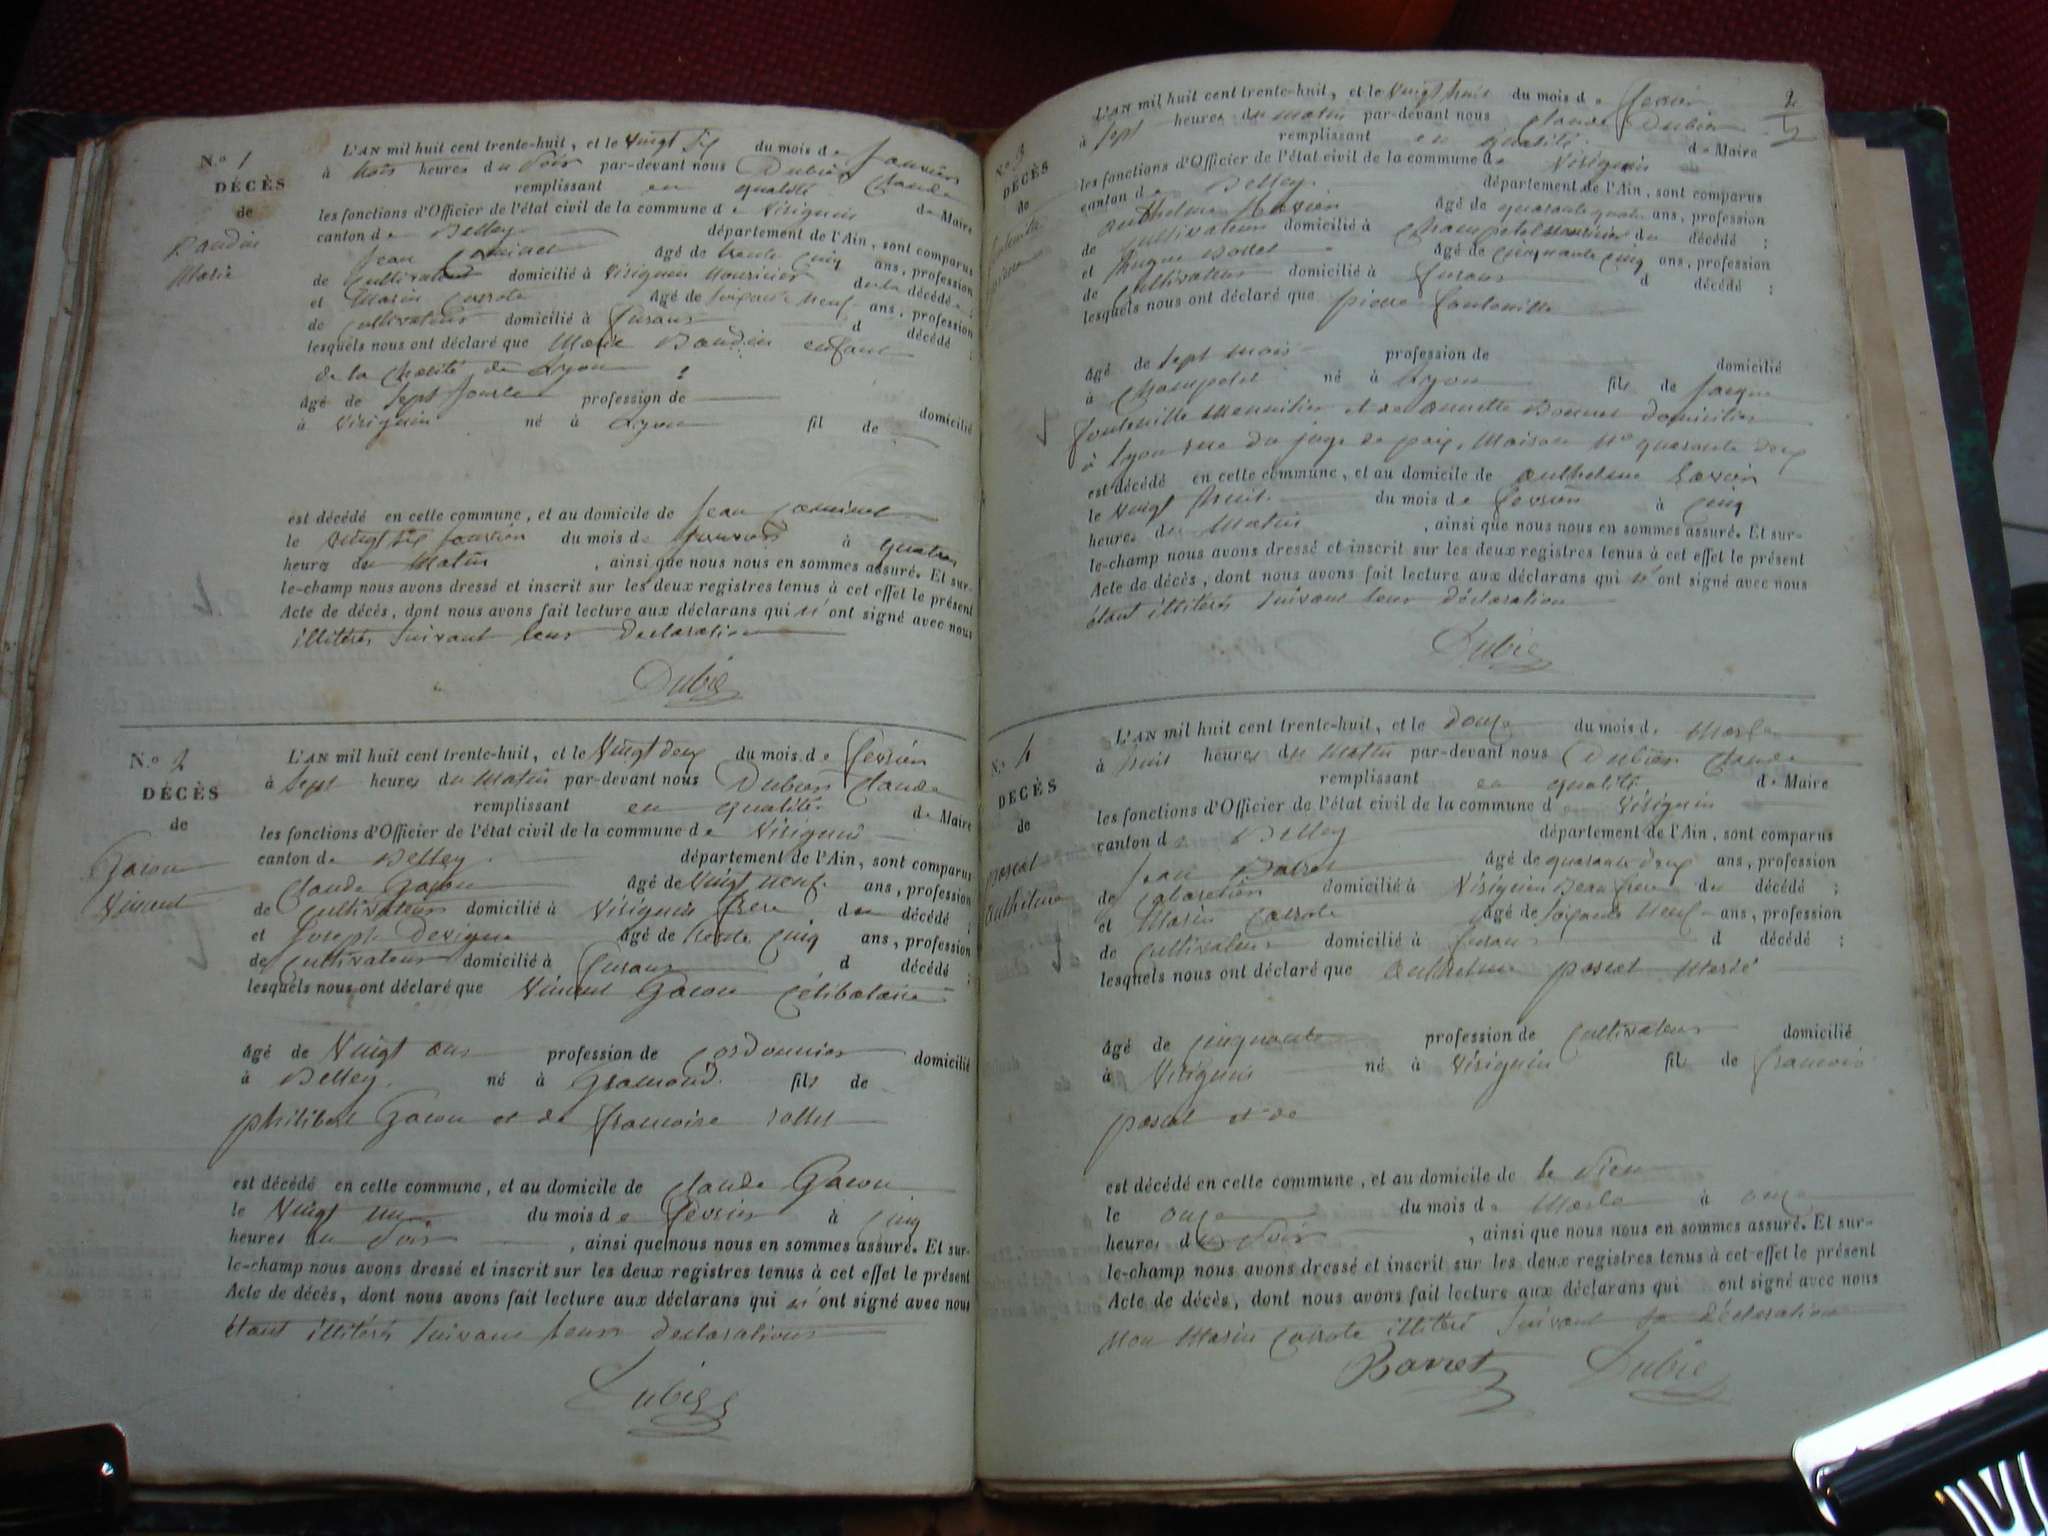 N.º 1
DÉCÈS
de
Baudin
Marie
L'AN mil huit cent trente-huit, et le vingt six du mois de janvier
à trois heures du soir par-devant nous Dubier Claude
remplissant en qualité de Maire
les fonctions d'Officier de l'état civil de la commune de Virignin
canton de Belley département de l'Ain, sont comparus
Jean agé de trente cinq ans, profession
de cultivateur domicilié à Virignin nourricier de la décédée ;
et Marin Carrote agé de soixante neuf ans, profession
de cultivateur domicilié à fusans d décédé ;
lesquels nous ont déclaré que Marie Baudin enfant
de la charité de Lyon
agé de sept jours profession de domicilié
à Virignin né à Lyon fil de
est décédé en cette commune, et au domicile de Jean
le vingt six janvier du mois de janvier à quatre
heures du matin , ainsi que nous nous en sommes assuré. Et sur-
le-champ nous avons dressé et inscrit sur les deux registres tenus à cet effet le présent
Acte de décès, dont nous avons fait lecture aux déclarans qui n'ont signé avec nous
illitérés suivant leur declaration
Dubier
N.º 2
DÉCÈS
de
Gacon
Vincent
L'AN mil huit cent trente-huit, et le vingt deux du mois de fevrier
à sept heures du matin par-devant nous Dubier Claude
remplissant en qualité de Maire
les fonctions d'Officier de l'état civil de la commune de Virignin
canton de Belley département de l'Ain, sont comparus
Claude Gacon agé de vingt neuf ans, profession
de cultivateur domicilié à Virignin frere du décédé ;
et Joseph agé de trente cinq ans, profession
de cultivateur domicilié à fusans d décédé ;
lesquels nous ont déclaré que Vincent Gacon célibataire
agé de vingt ans profession de cordonnier domicilié
à Belley né à fils de
philibert Gacon et de francoise rollet
est décédé en cette commune, et au domicile de Claude Gacon
le vingt un du mois de fevrier à cinq
heures du soir , ainsi que nous nous en sommes assuré. Et sur-
le-champ nous avons dressé et inscrit sur les deux registres tenus à cet effet le présent
Acte de décès, dont nous avons fait lecture aux déclarans qui n'ont signé avec nous
étant illitérés suivant leurs declarations
Dubier
2
N.º 3
DÉCÈS
de
L'AN mil huit cent trente-huit, et le vingt huit du mois de fevrier
à sept heures du matin par-devant nous Claude Dubier
remplissant en qualité de Maire
les fonctions d'Officier de l'état civil de la commune de Virignin
canton de Belley département de l'Ain, sont comparus
anthelme agé de quarante quatre ans, profession
de cultivateur domicilié à Champetel nourricier du décédé ;
et agé de cinquante cinq ans, profession
de cultivateur domicilié à fusans d décédé ;
lesquels nous ont déclaré que pierre fontenille
agé de sept mois profession de domicilié
à Champetel né à Lyon fils de Jacque
fontenille menuisier et de annette Bonnet domicilies
à Lyon rue du juge de paix, maison Nº quarante deux
est décédé en cette commune, et au domicile de anthelme
le vingt huit du mois de fevrier à cinq
heures du matin , ainsi que nous nous en sommes assuré. Et sur-
le-champ nous avons dressé et inscrit sur les deux registres tenus à cet effet le présent
Acte de décès, dont nous avons fait lecture aux déclarans qui n'ont signé avec nous
étant illitérés suivant leur déclaration
Dubier
N.º 4
DÉCÈS
de
pascal
anthelme
L'AN mil huit cent trente-huit, et le douze du mois de Mars
à huit heures du matin par-devant nous Dubier Claude
remplissant en qualité de Maire
les fonctions d'Officier de l'état civil de la commune d Virignin
canton de Belley département de l'Ain, sont comparus
Jean Barret agé de quarante deux ans, profession
de cabaretier domicilié à Virignin Beau frere du décédé ;
et Marin Carrote agé de soixante neuf ans, profession
de cultivateur domicilié à fusans d décédé ;
lesquels nous ont déclaré que anthelme pascal marié
agé de cinquante profession de cultivateur domicilié
à Virignin né à Virignin fil de francois
pascal et de
est décédé en cette commune, et au domicile de le sien
le onze du mois de Mars à onze
heures du soir , ainsi que nous nous en sommes assuré. Et sur-
le-champ nous avons dressé et inscrit sur les deux registres tenus à cet effet le présent
Acte de décès, dont nous avons fait lecture aux déclarans qui ont signé avec nous
non Marin Carrote illitéré suivant sa déclaration
Barret Dubier